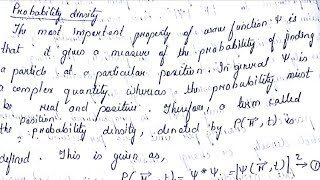 Probability density
The most important property of wave function Ψ is
that it gives a measure of the probability of finding
a particle at a particular position. In general Ψ is
a complex quantity whereas the probability must
be real and positive. Therefore, a term called
the position probability density, denoted by P(π⃗,t) is
defined. This is given as,
P(π⃗,t) = Ψ*Ψ = |Ψ(π⃗,t)|² → ①